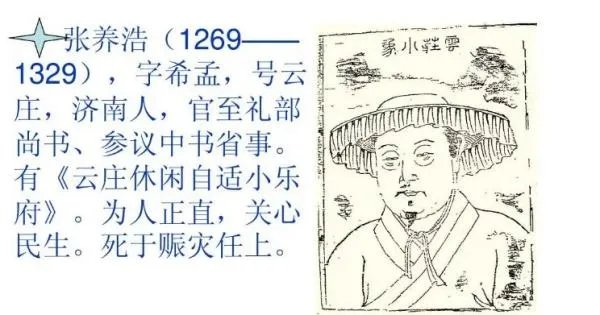 张养浩（1269——
1329），字希孟，号云
庄，济南人，官至礼部
尚书、参议中书省事。
有《云庄休闲自适小乐
府》。为人正直，关心
民生。死于赈灾任上。
像小莊雲